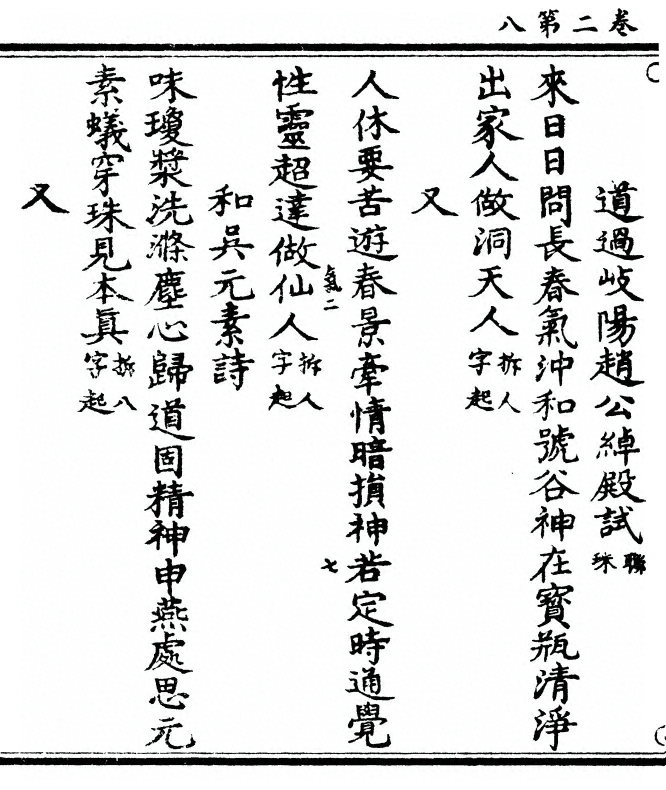 卷二第八
道過岐陽趙公綽殿試聯珠
來日日問長春氣沖和號谷神在寶瓶清淨
出家人做洞天人拆人字起
又
人休要苦遊春景牽情暗損神若定時通覺
氣二 七
性靈超達做仙人拆人字起
和吳元素詩
味瓊漿洗滌塵心歸道固精神申燕處思元
素蟻穿珠見本眞拆八字起
又